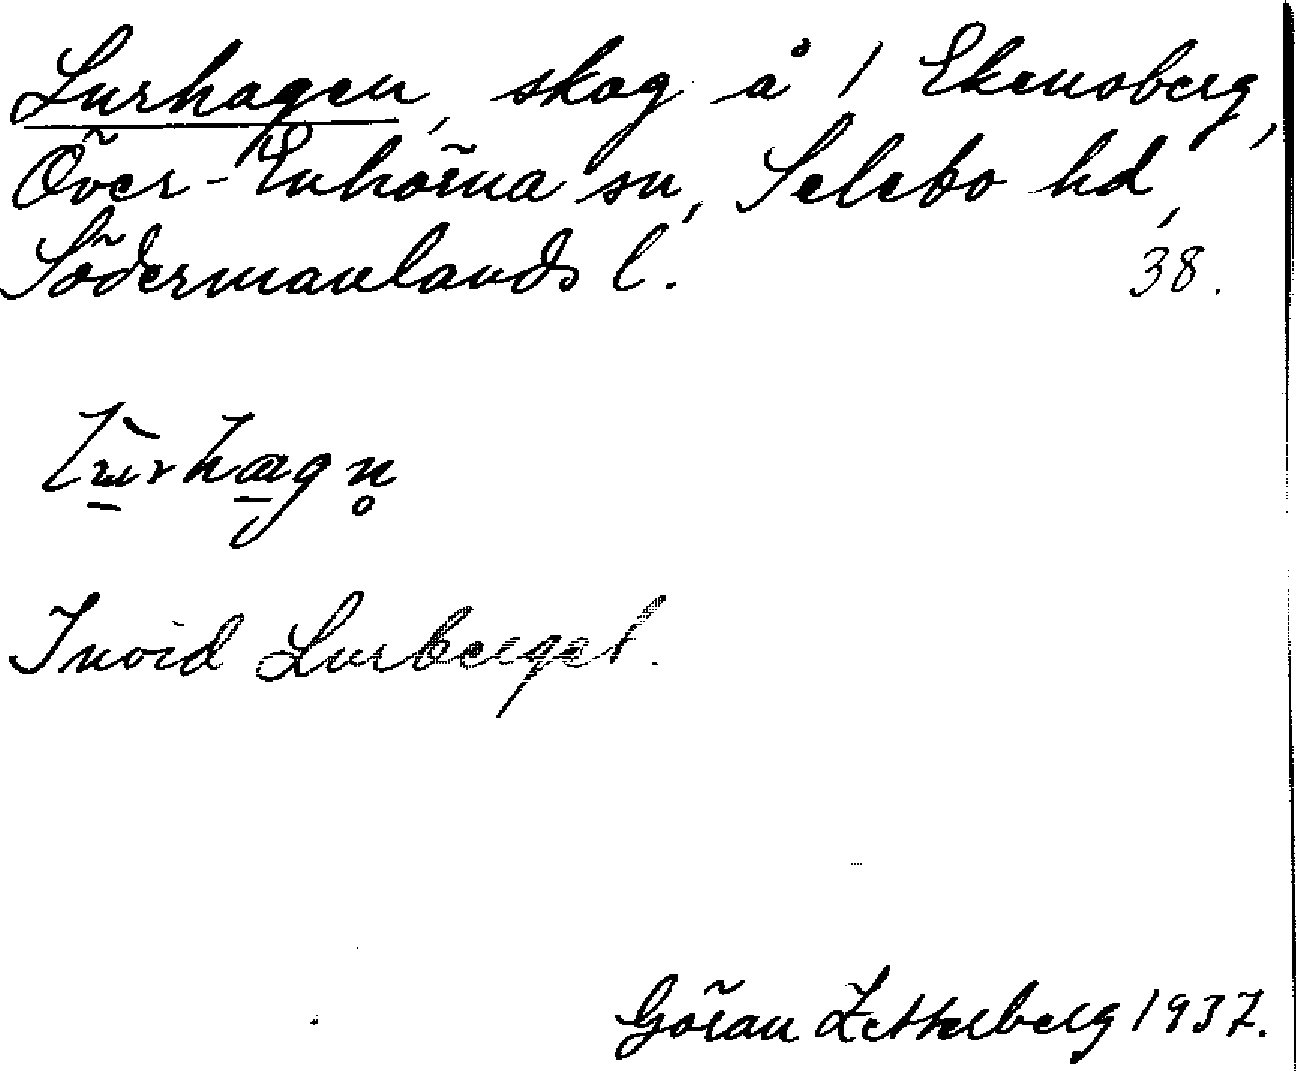 Lurhagen, skog å 1 Ekensberg,
Över-Enhörna sn, Selebo hd,
Södermanlands l. 38.
Invid Lurberget.
Göran Zetterberg 1937.